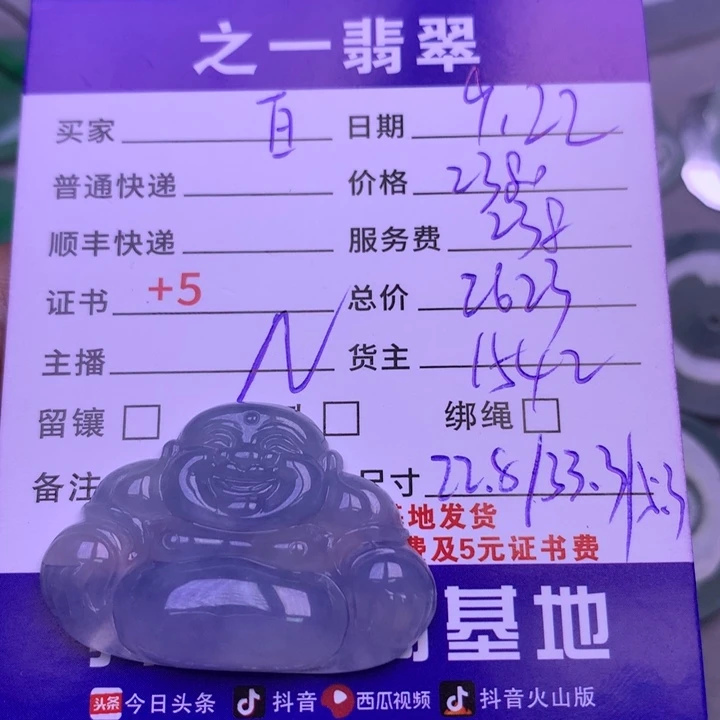 之一翡翠
买家 百 日期 9.22
普通快递 价格 2380
顺丰快递 服务费 238
证书 +5 总价 2623
主播 货主 1542
留镶 绑绳
备注 尺寸 22.8/33.3/5.3
基地发货
费及5元证书费
基地
头条 今日头条 抖音 西瓜视频 抖音火山版